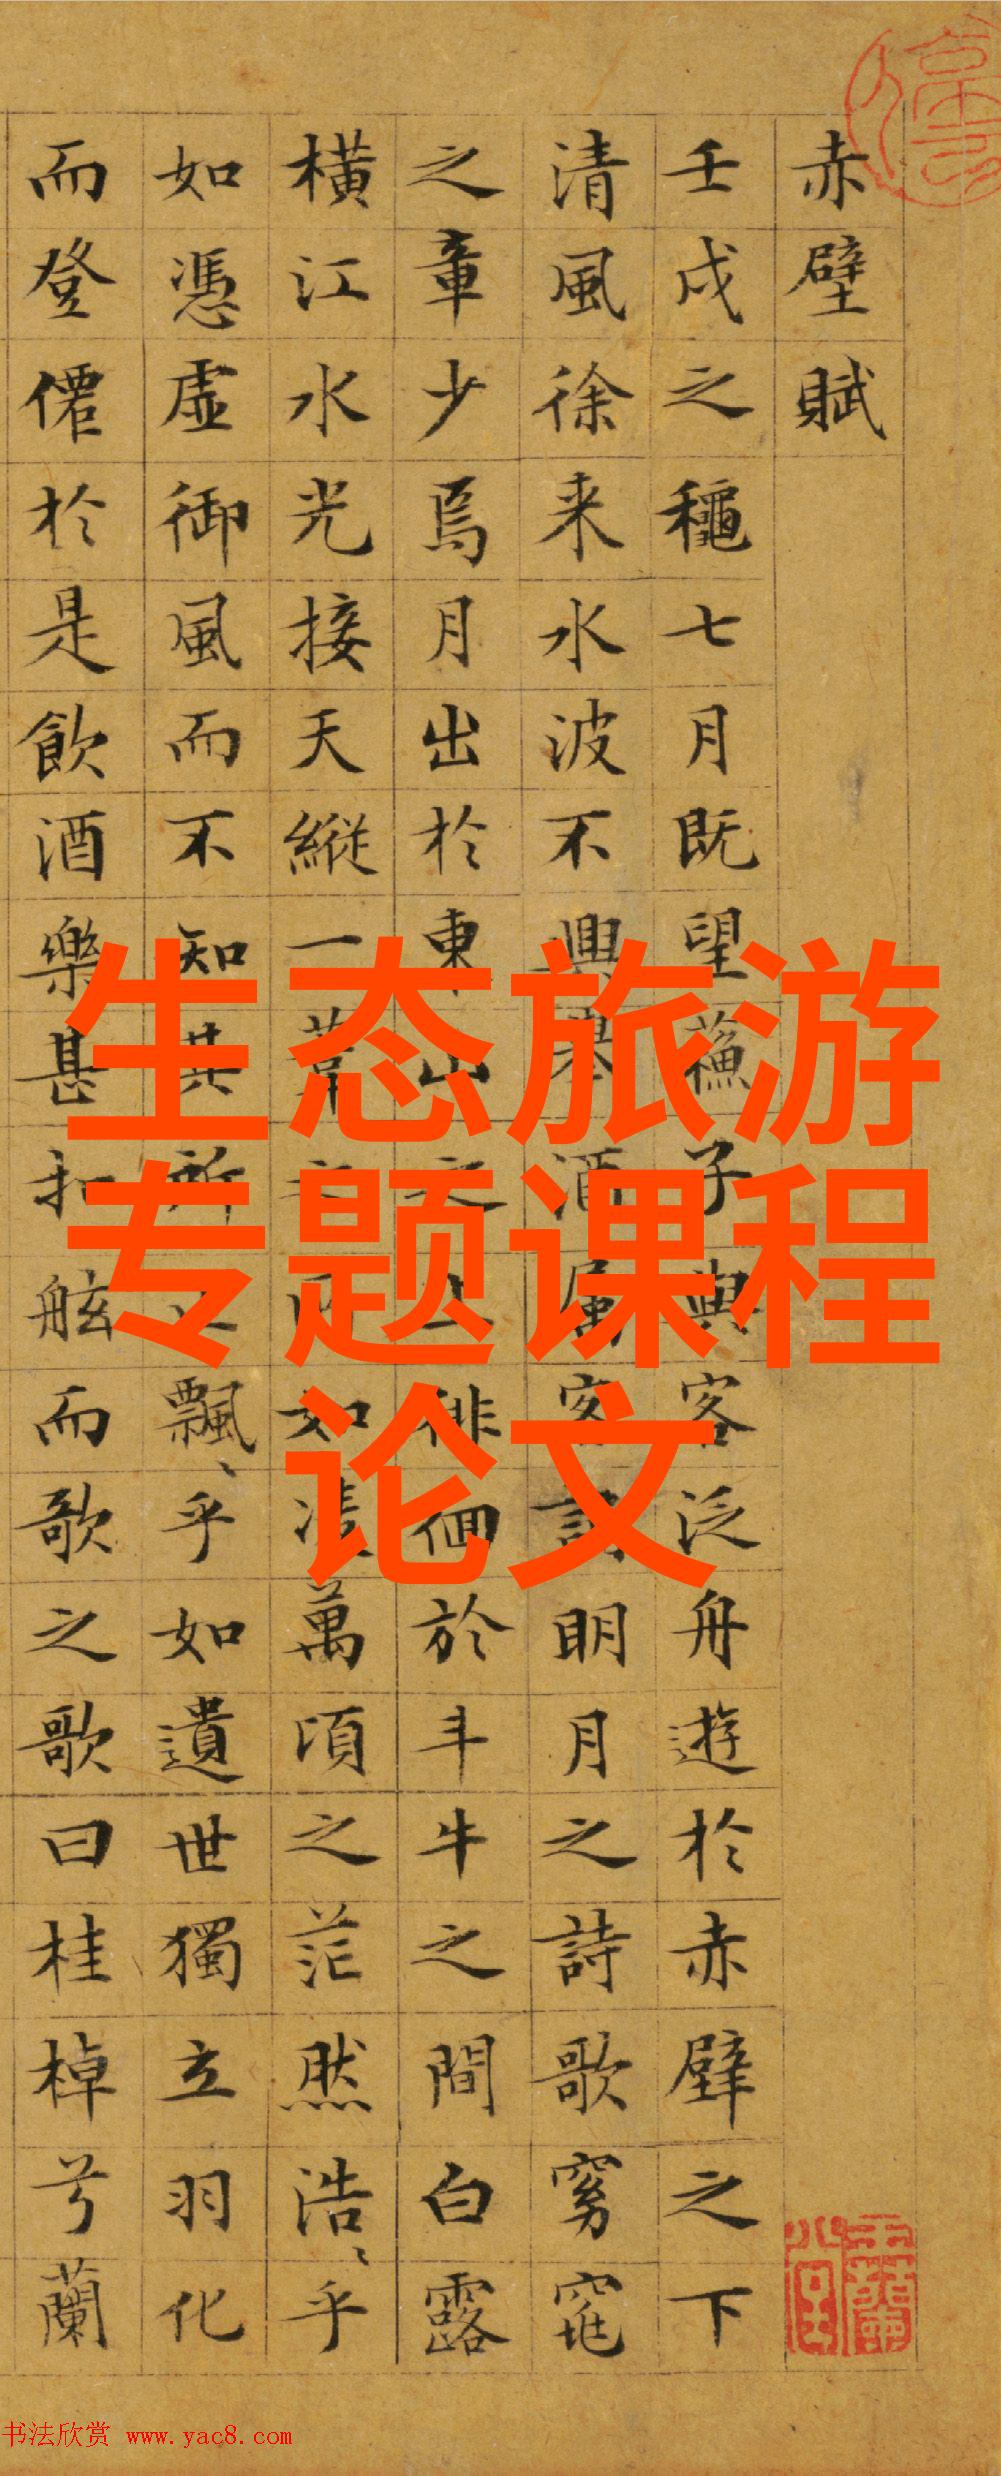 赤壁賦
壬戌之穐七月既望蘓子與客泛舟遊於赤壁之下
清風徐来水波不興舉酒属客誦明月之詩歌窈窕
之章少焉月出於東山之上徘徊於斗牛之間白露
橫江水光接天縱一葦之所如凌萬頃之茫然浩〻乎
如憑虛御風而不知其所止飄〻乎如遺世獨立羽化
而登僊於是飲酒樂甚扣舷而歌之歌曰桂棹兮蘭
生态旅游
专题课程
论文
书法欣赏 www.yac8.com